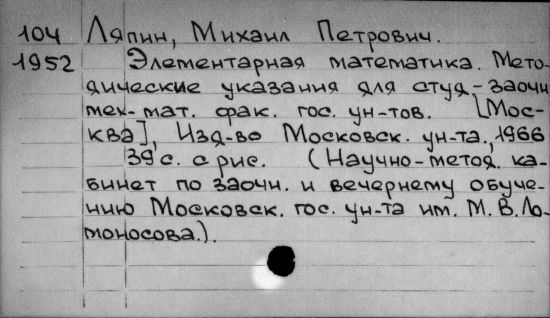 104 Ляпин, Михаил Петрович.
1952 Элементарная математика. Мето-
дические указания для студ-заочн
мех-мат. фак. гос. ун-тов. [Мос-
ква], Изд-во Московск. ун-та, 1966
39 с. с рис. (Научно-метод. ка-
бинет по заочн. и вечернему обуче-
нию Московск. гос. ун-та им. М. В. Ло-
моносова.).